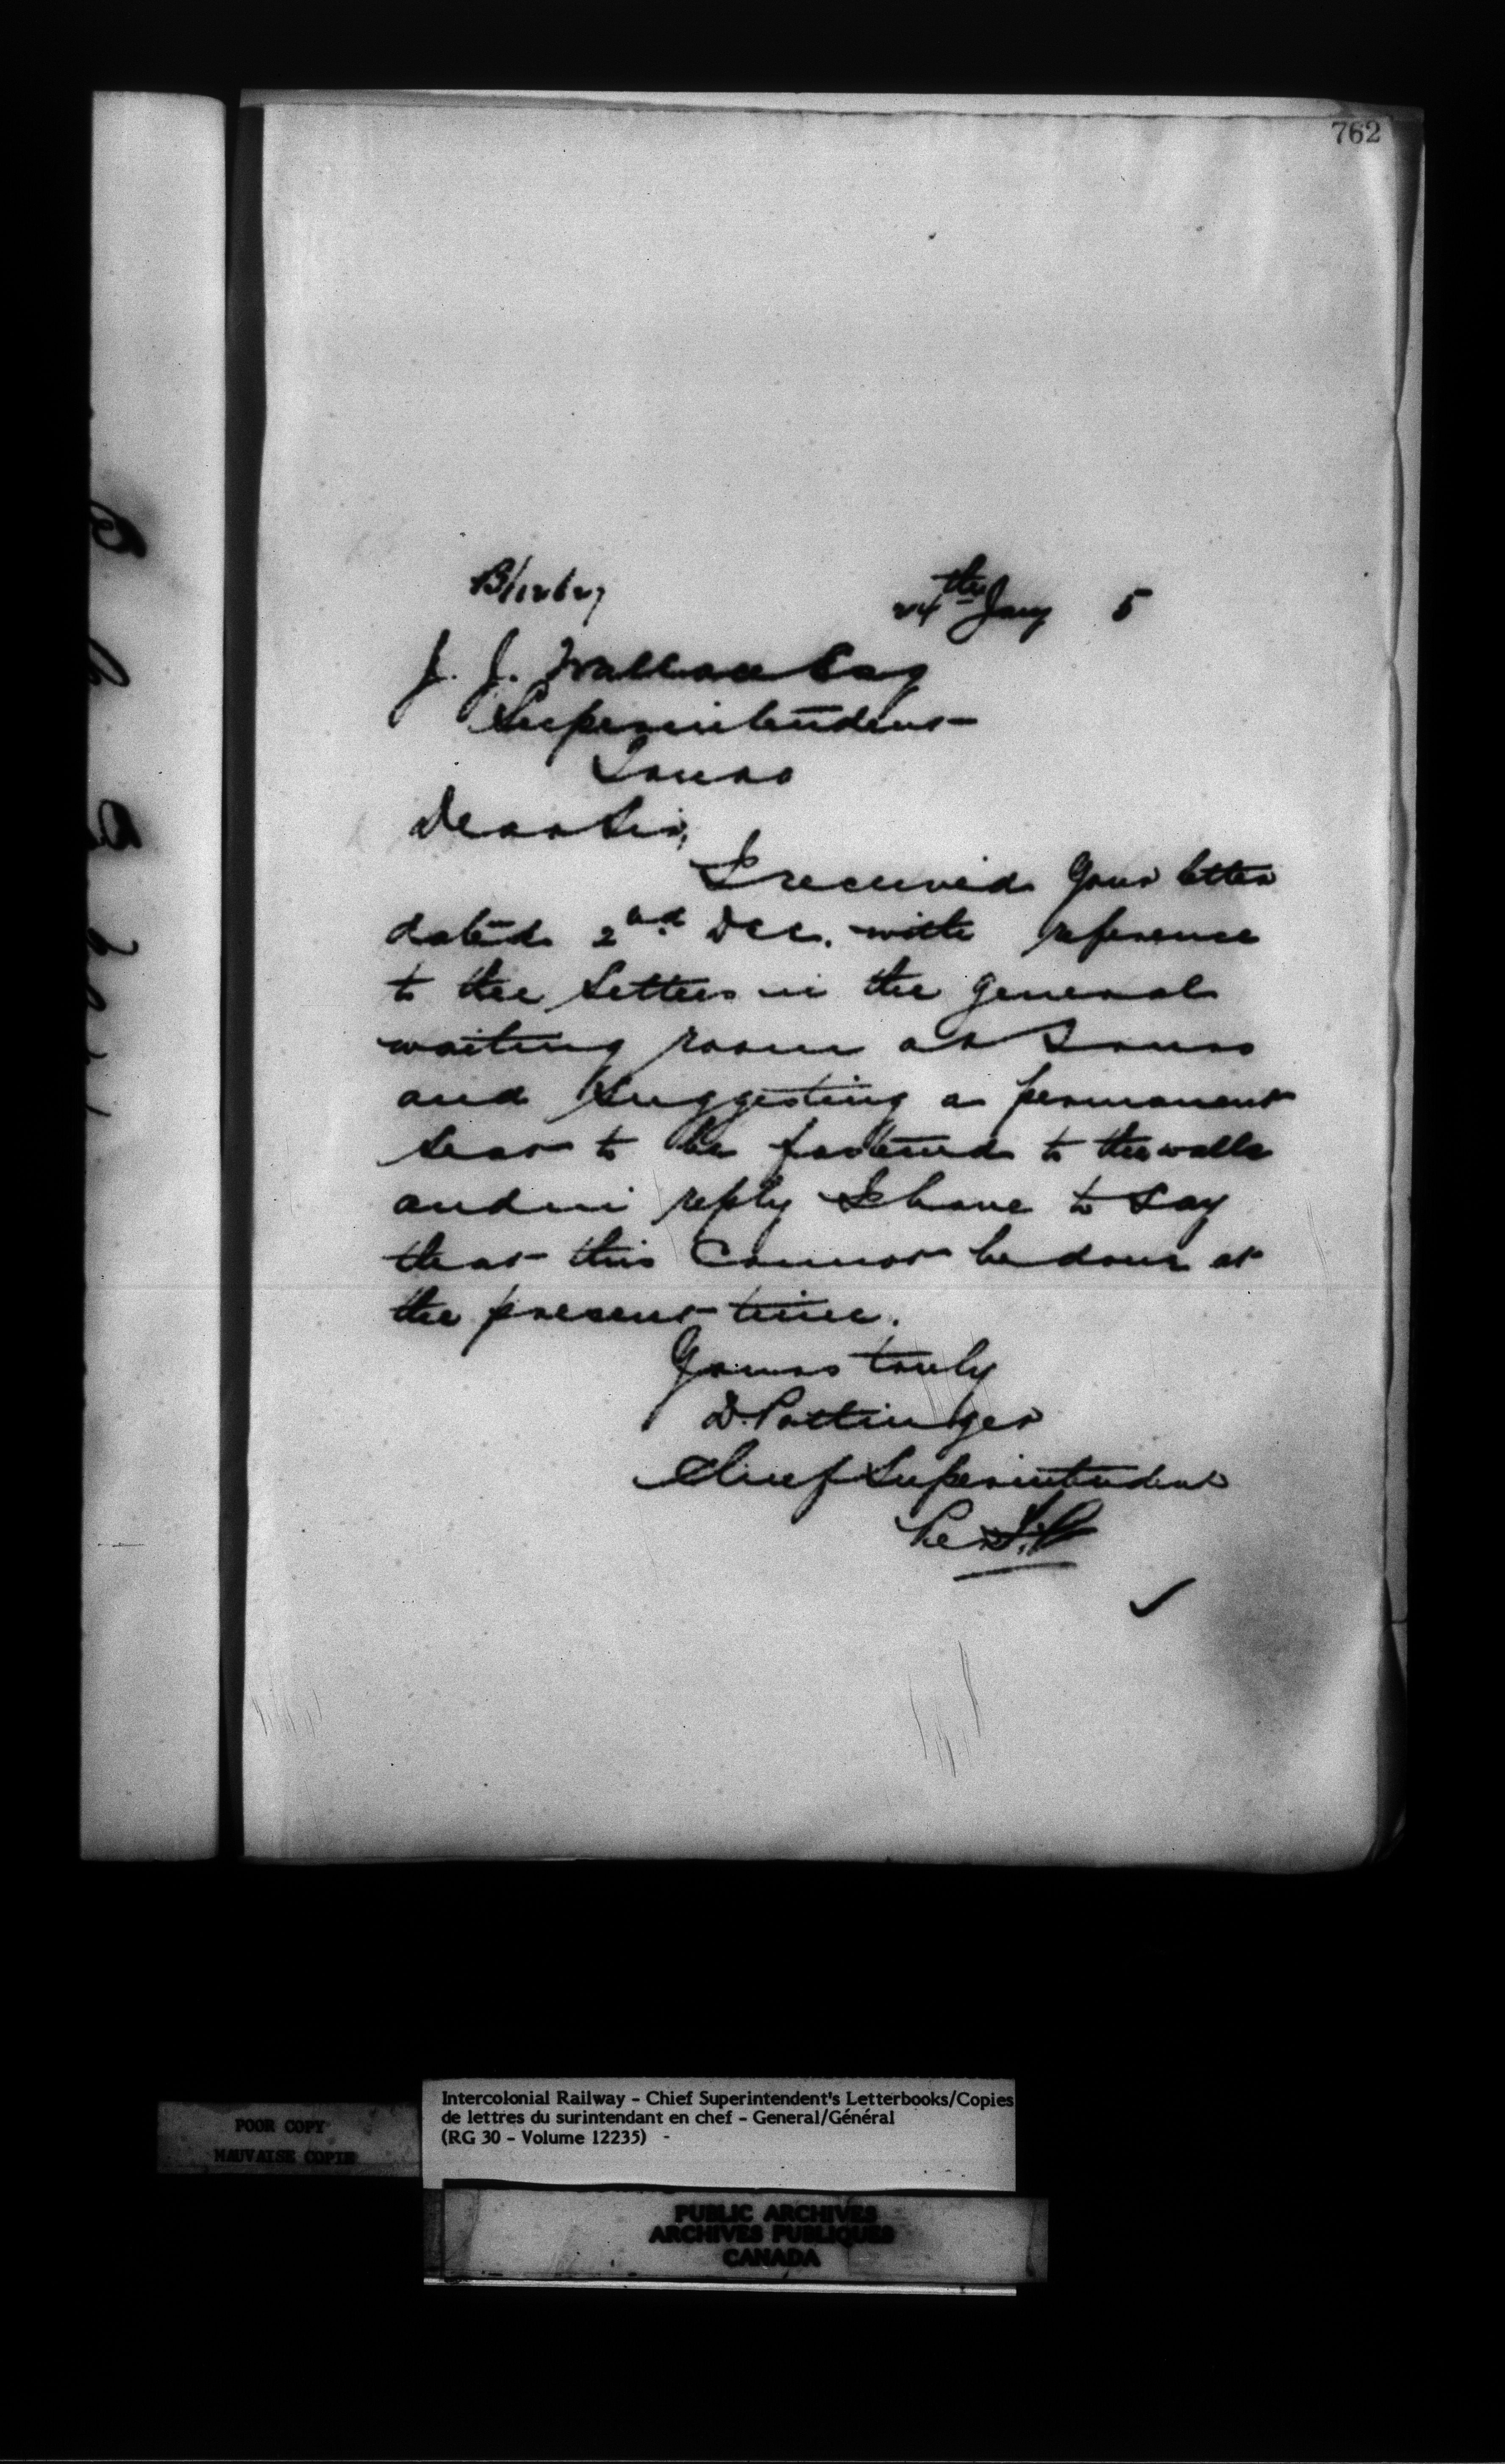 762
24th Jany 5
J. J. Wallace Esq
Superintendent
Truro
Dear Sir,
I received your letter
dated 2nd Dec. with reference
to the Settees in the General
waiting room at Truro
and suggesting a permanent
seat to be fastened to the walls
and in reply I have to say
that this cannot be done at
the present time.
Yours truly
D. Pottinger
Chief Superintendent
Per
Intercolonial Railway - Chief Superintendent's Letterbooks/Copies
de lettres du surintendant en chef - General/Général
(RG 30 - Volume 12235) -
POOR COPY
MAUVAISE COPIE
PUBLIC ARCHIVES
ARCHIVES PUBLIQUES
CANADA